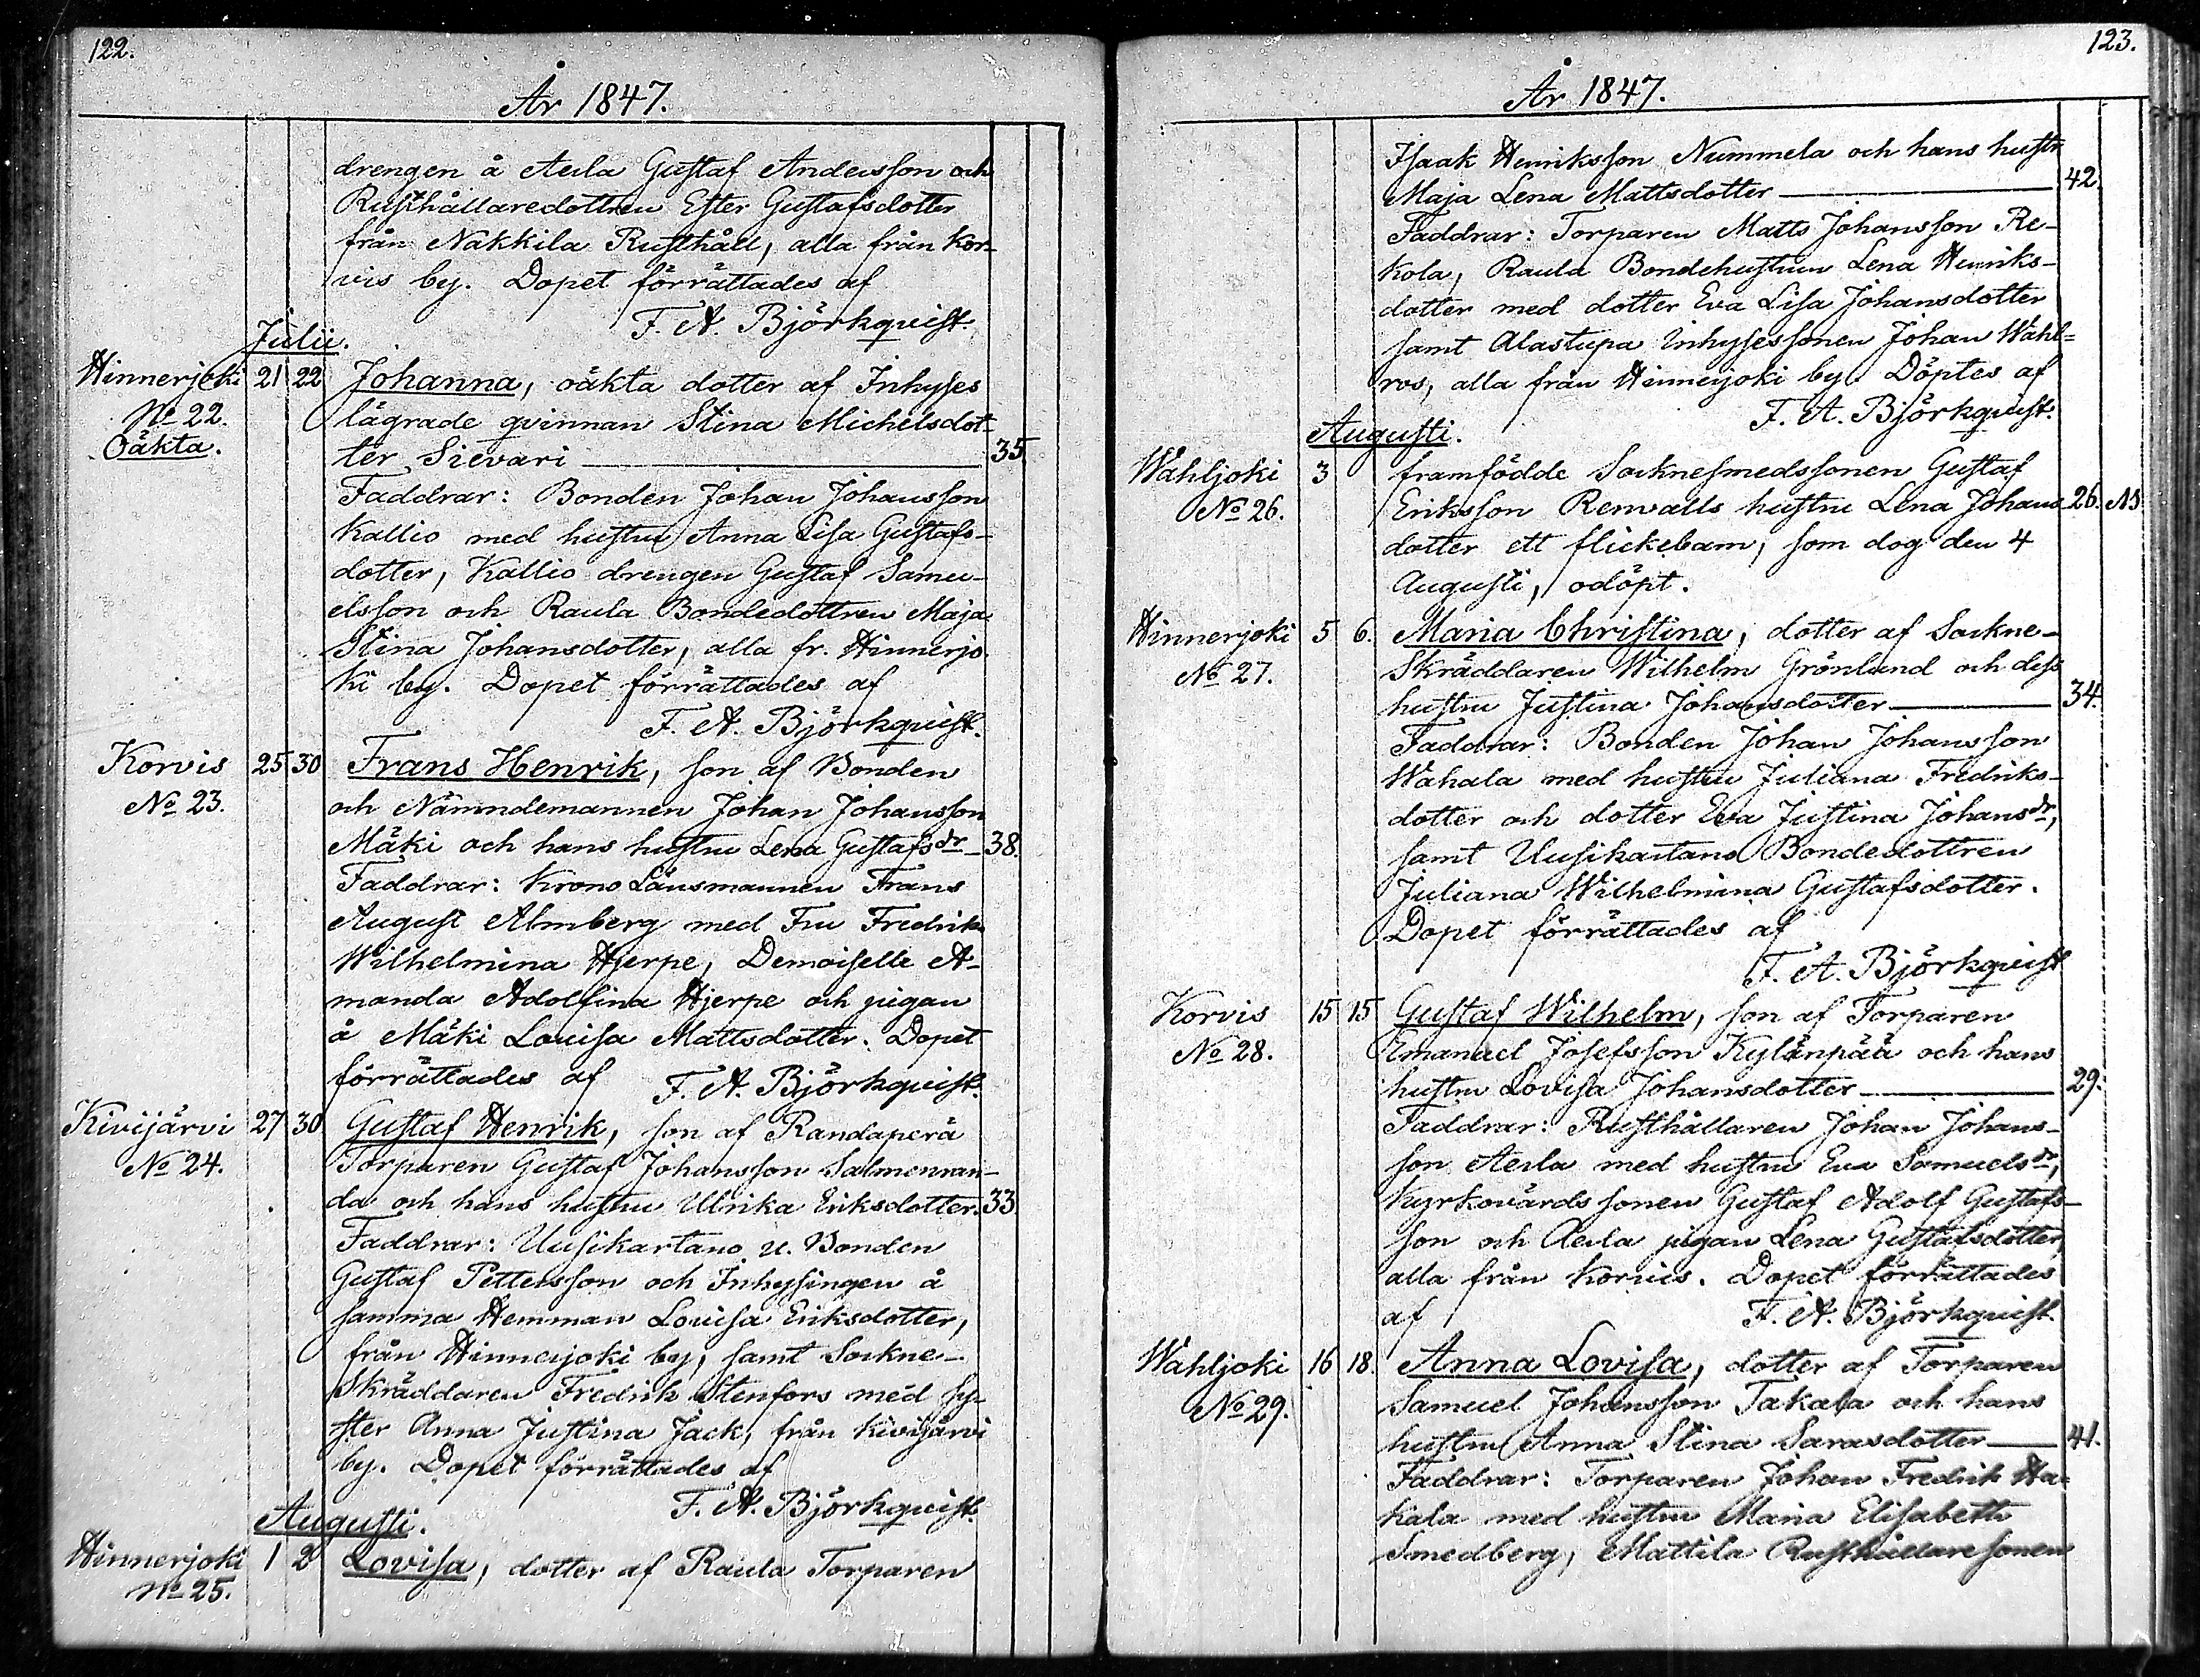 122.
År 1847.
drengen å Aula Gustaf Andersson och
Rusthållaredottren Ester Gustafsdotter
från Nakkila Rusthåll, alla från Kor-
vis by. Dopet förrättades af
F. A. Björkqvist.
Julii.
Hinnerjoki 21 22 Johanna, oäkta dotter af Inhyses
No 22. lägrade qvinnan Stina Michelsdot-
Oäkta. ter Sievari — 35
Faddrar: Bonden Johan Johansson
Kallio med hustru Anna Lisa Gustafs-
dotter, Kallio drengen Gustaf Samu-
elsson och Raula Bondedottren Maja
Stina Johansdotter, alla fr. Hinnerjo-
ki by. Dopet förrättades af
F. A. Björkqvist.
Korvis 25 30 Frans Henrik, son af Bonden
No 23. och Nämndemannen Johan Johansson
Mäki och hans hustru Lena Gustafsdr — 38.
Faddrar: Krono Länsmannen Frans
August Almberg med Fru Fredrika
Wilhelmina Hjerpe, Demoiselle A-
manda Adolfina Hjerpe och pigan
å Mäki Lovisa Mattsdotter. Dopet
förrättades af F. A. Björkqvist.
Kivijärvi 27 30 Gustaf Henrik, son af Randaperä
No 24. Torparen Gustaf Johansson Salmenran-
da och hans hustru Ulrika Eriksdotter. 33
Faddrar: Uusikartano u. Bonden
Gustaf Pettersson och Inhysingen å
samma Hemman Lovisa Eriksdotter,
från Hinnerjoki by, samt Sockne-
Skräddaren Fredrik Stenfors med sy-
ster Anna Justina Jack, från Kivijärvi
by. Dopet förrättades af
F. A. Björkqvist.
Augusti.
Hinnerjoki 1 2 Lovisa, dotter af Raula Torparen
No 25.
123.
År 1847.
Isaak Henriksson Nummela och hans hustr
Maja Lena Mattsdotter — 42.
Faddrar: Torparen Matts Johansson Re-
kola, Raula Bondehustrun Lena Henriks-
dotter med dotter Eva Lisa Johansdotter
samt Alastupa Inhysessonen Johan Wahl-
ros, alla från Hinnerjoki by. Döptes af
F. A. Björkqvist.
Augusti.
Wahljoki 3 framfödde Socknesmedssonen Gustaf
No 26. Eriksson Renvalls hustru Lena Johans- 26.
dotter ett flickebarn, som dog den 4
Augusti, odöpt.
Hinnerjoki 5 6. Maria Christina, dotter af Sockne-
No 27. Skräddaren Wilhelm Grönlund och dess
hustru Justina Johansdotter — 34.
Faddrar: Bonden Johan Johansson
Wahala med hustru Juliana Fredriks-
dotter och dotter Eva Justina Johansdr,
samt Uusikartano Bondedottren
Juliana Wilhelmina Gustafsdotter.
Dopet förrättades af
F. A. Björkqvist
Korvis 15 15 Gustaf Wilhelm, son af Torparen
No 28. Emanuel Josefsson Kylänpää och hans
hustru Lovisa Johansdotter — 29.
Faddrar: Rusthållaren Johan Johans-
son Aula med hustru Eva Samuelsdr,
Kyrkovärdssonen Gustaf Adolf Gustafs-
son och Aula pigan Lena Gustafsdotter,
alla från Korvis. Dopet förrättades
af F. A. Björkqvist.
Wahljoki 16 18. Anna Lovisa, dotter af Torparen
No 29. Samuel Johansson Takala och hans
hustru Anna Stina Sarasdotter — 41.
Faddrar: Torparen Johan Fredrik Ha-
kala med hustru Maria Elisabeth
Smedberg, Mattila Rusthållaresonen